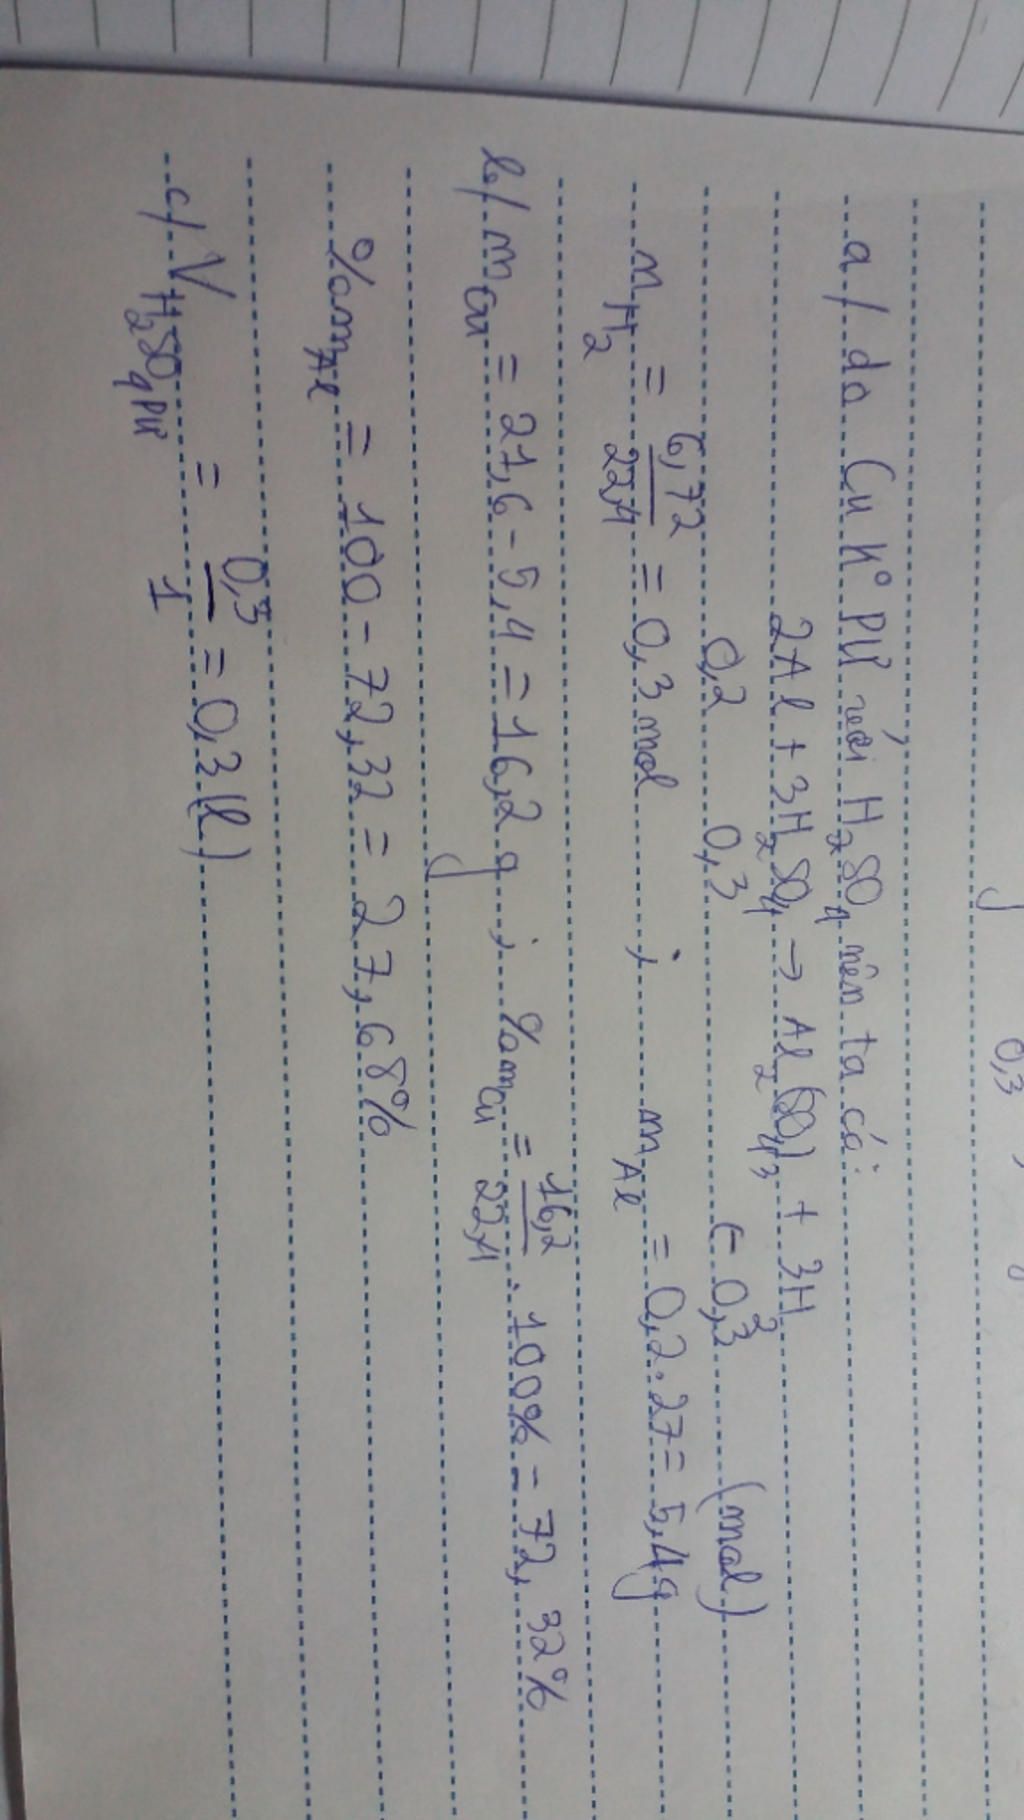 0,3
a/ do Cu K° PƯ với H2SO4 nên ta có:
2Al + 3H2SO4 → Al2(SO4)3 + 3H2
0,2 0,3 ← 0,3 (mol)
nH2 = 6,72/22,4 = 0,3 mol ; mAl = 0,2.27 = 5,4g
b/ mCu = 21,6 - 5,4 = 16,2 g ; %mCu = 16,2/22,4 . 100% = 72,32%
%mAl = 100 - 72,32 = 27,68%
c/ VH2SO4 PƯ = 0,3/1 = 0,3 (l)